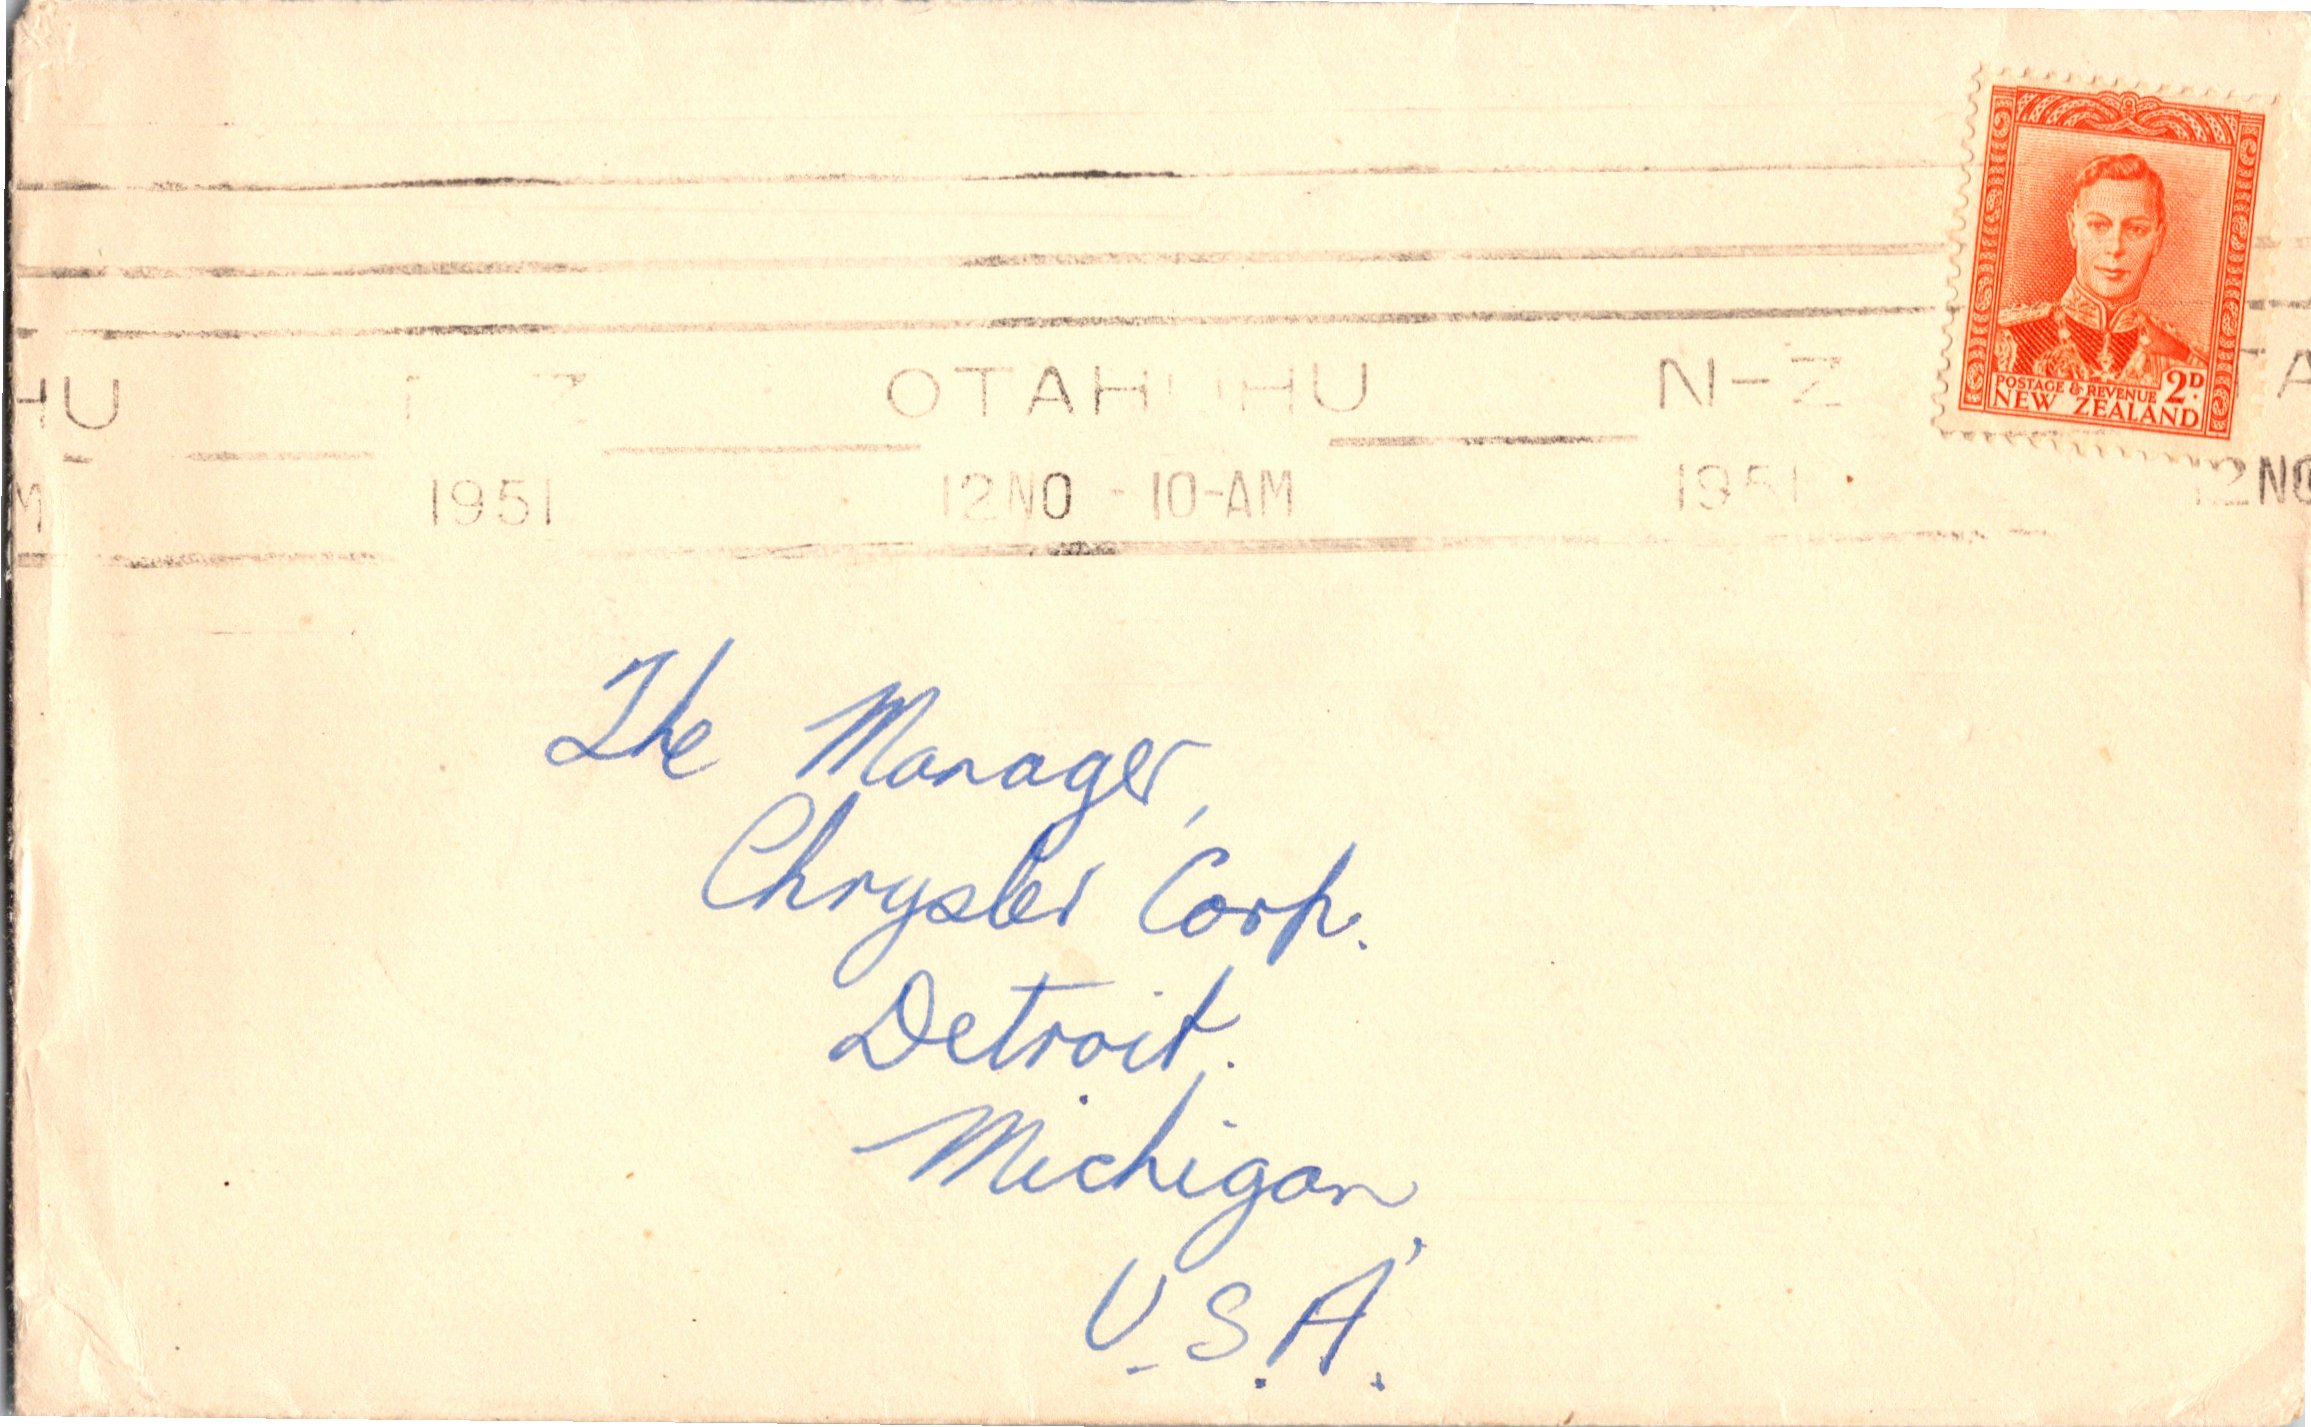 HU N-Z OTAHUHU N-Z TA
M 1951 12NO -10-AM 1951 12NO
POSTAGE & REVENUE 2D.
NEW ZEALAND
The Manager,
Chrysler Corp.
Detroit.
Michigan,
U.S.A.